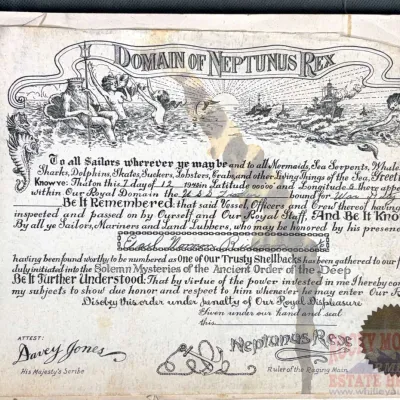 DOMAIN OF NEPTUNUS REX
To all Sailors wherever ye may be and to all Mermaids, Sea Serpents, Whale
Sharks, Dolphins, Skates, Suckers, Lobsters, Crabs, and other Living Things of the Sea, Greeti
Know ye: That on this 7 day of 12 19 in Latitude 00000 and Longitude there appe
within Our Royal Domain the USS bound for War
Be It Remembered, that said Vessel, Officers and Crew thereof having
inspected and passed on by Ourself and Our Royal Staff, And Be It Kno
By all ye Sailors, Mariners and Land Lubbers, who may be honored by his presence
having been found worthy to be numbered as One of our Trusty Shellbacks has been gathered to our fo
duly initiated into the Solemn Mysteries of the Ancient Order of the Deep
Be It Further Understood: That by virtue of the power invested in me I hereby co
my subjects to show due honor and respect to him whenever he may enter Our R
Disobey this order under penalty of Our Royal Displeasure
Given under our hand and seal
this
ATTEST:
Davey Jones
His Majesty's Scribe
Neptunus Rex
Ruler of the Raging Main
ESTATE